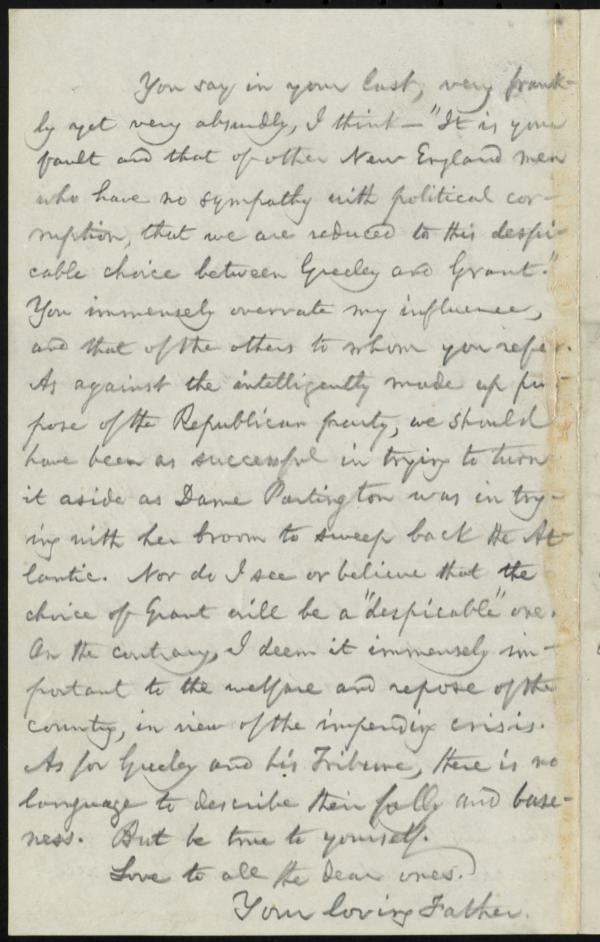 You say in your last, very frank-
ly yet very absurdly, I think — "It is your
fault and that of other New England men
who have no sympathy with political cor-
ruption, that we are reduced to this despi-
cable choice between Greeley and Grant."
You immensely overrate my influence,
and that of the others to whom you refer.
As against the intelligently made up pur-
pose of the Republican party, we should
have been as successful in trying to turn
it aside as Dame Partington was in try-
ing with her broom to sweep back the At-
lantic. Nor do I see or believe that the
choice of Grant will be a "despicable" one.
On the contrary, I deem it immensely im-
portant to the welfare and repose of the
country, in view of the impending crisis.
As for Greeley and his Tribune, there is no
language to describe their folly and base-
ness. But be true to yourself.
Love to all the dear ones.
Your loving Father.